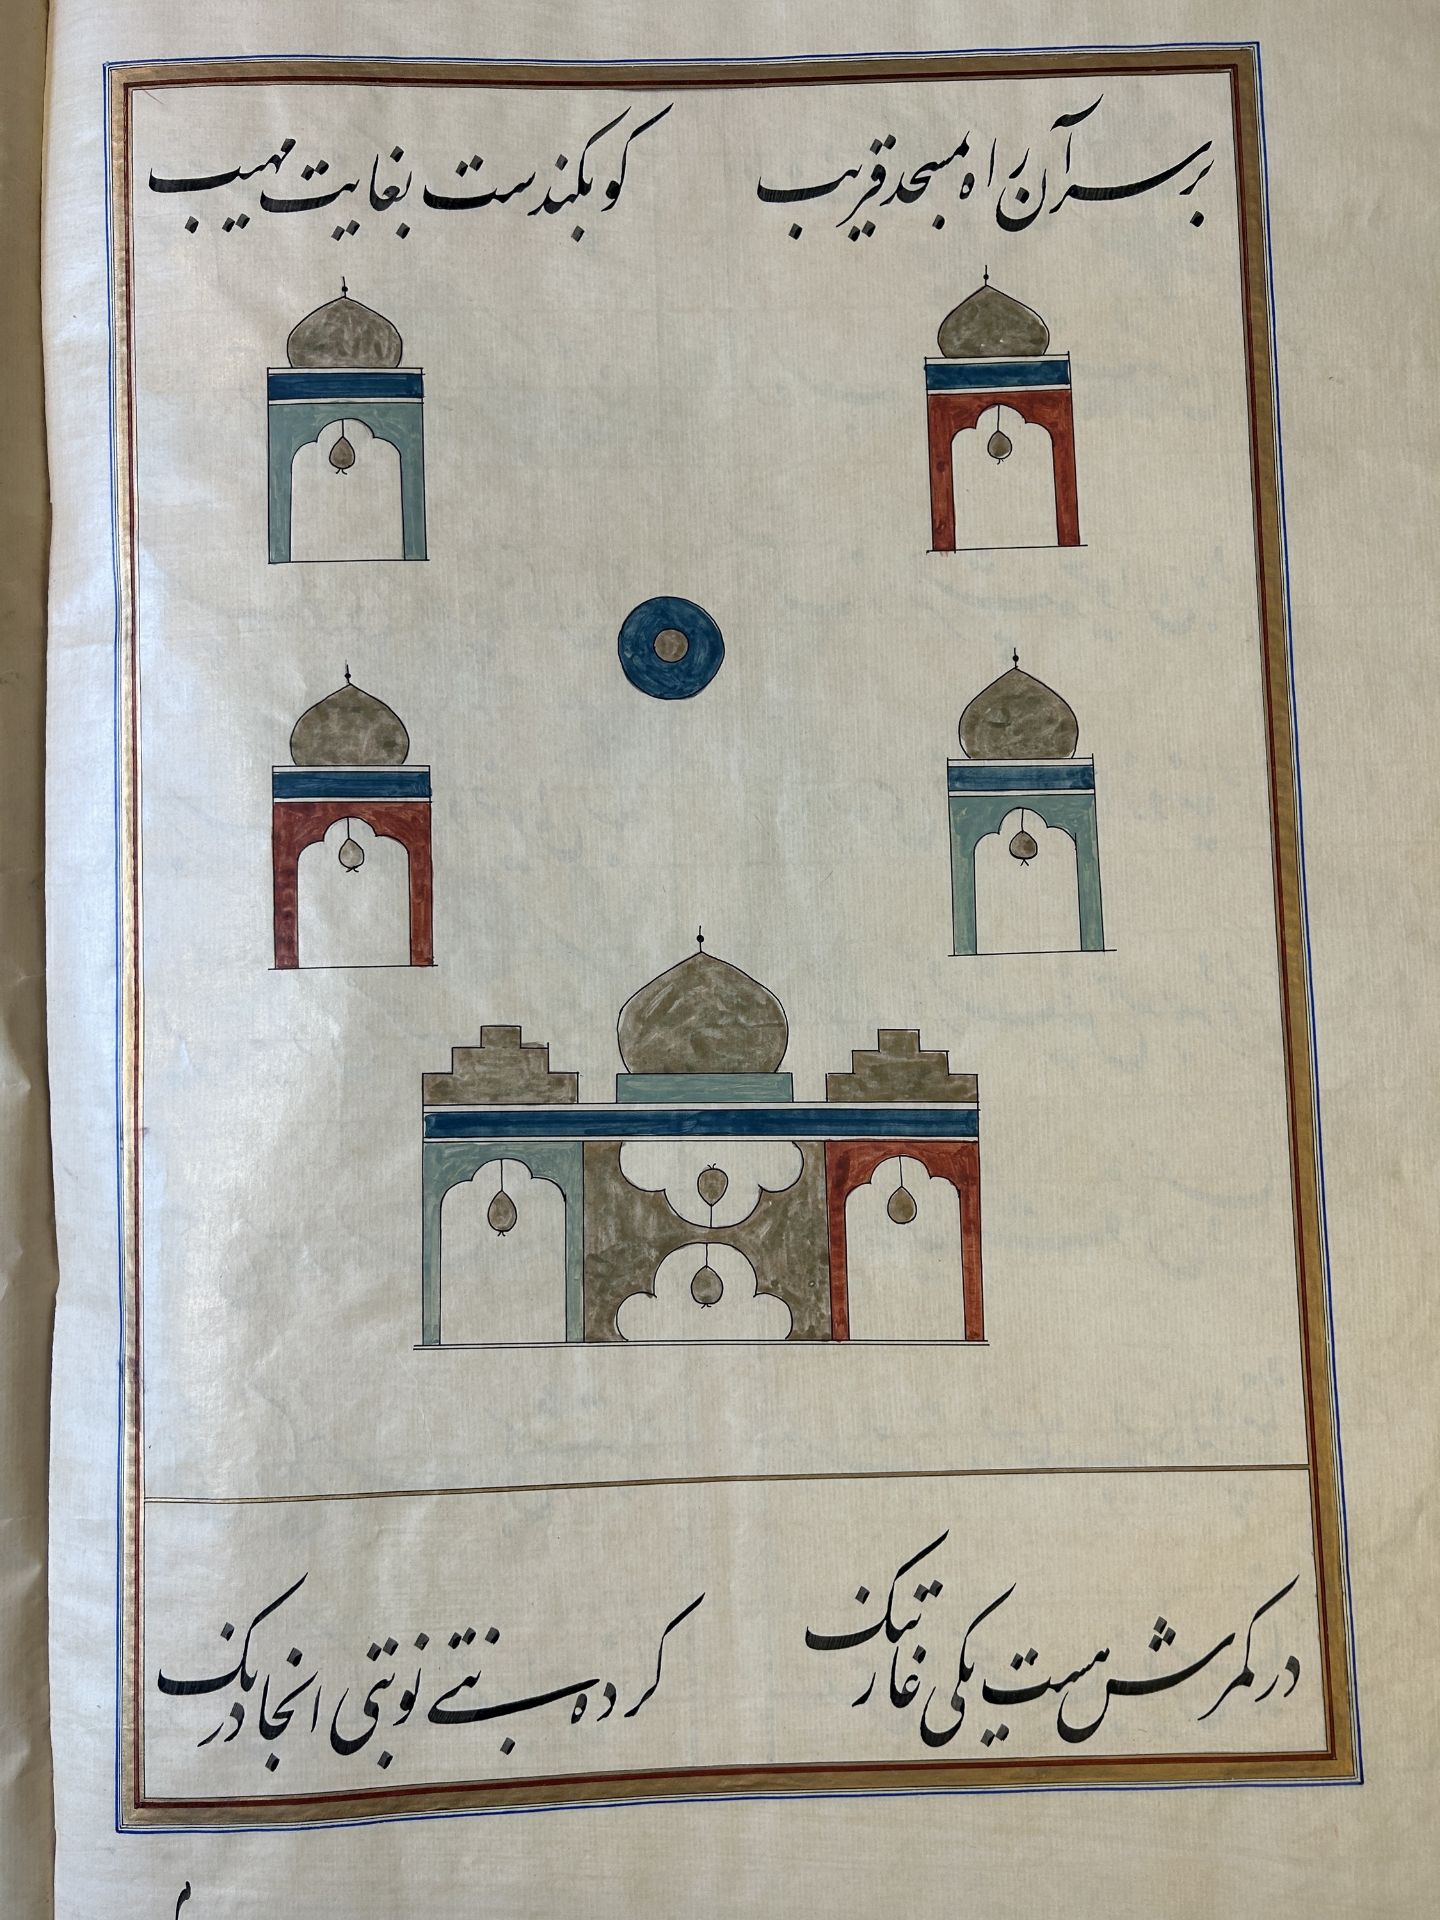 بر سر آن راه مسجد قریب
کو بکهندست بغایت مهیب
در کمرش هست یکی غار تنک
کرده نوبتی انجا درنک